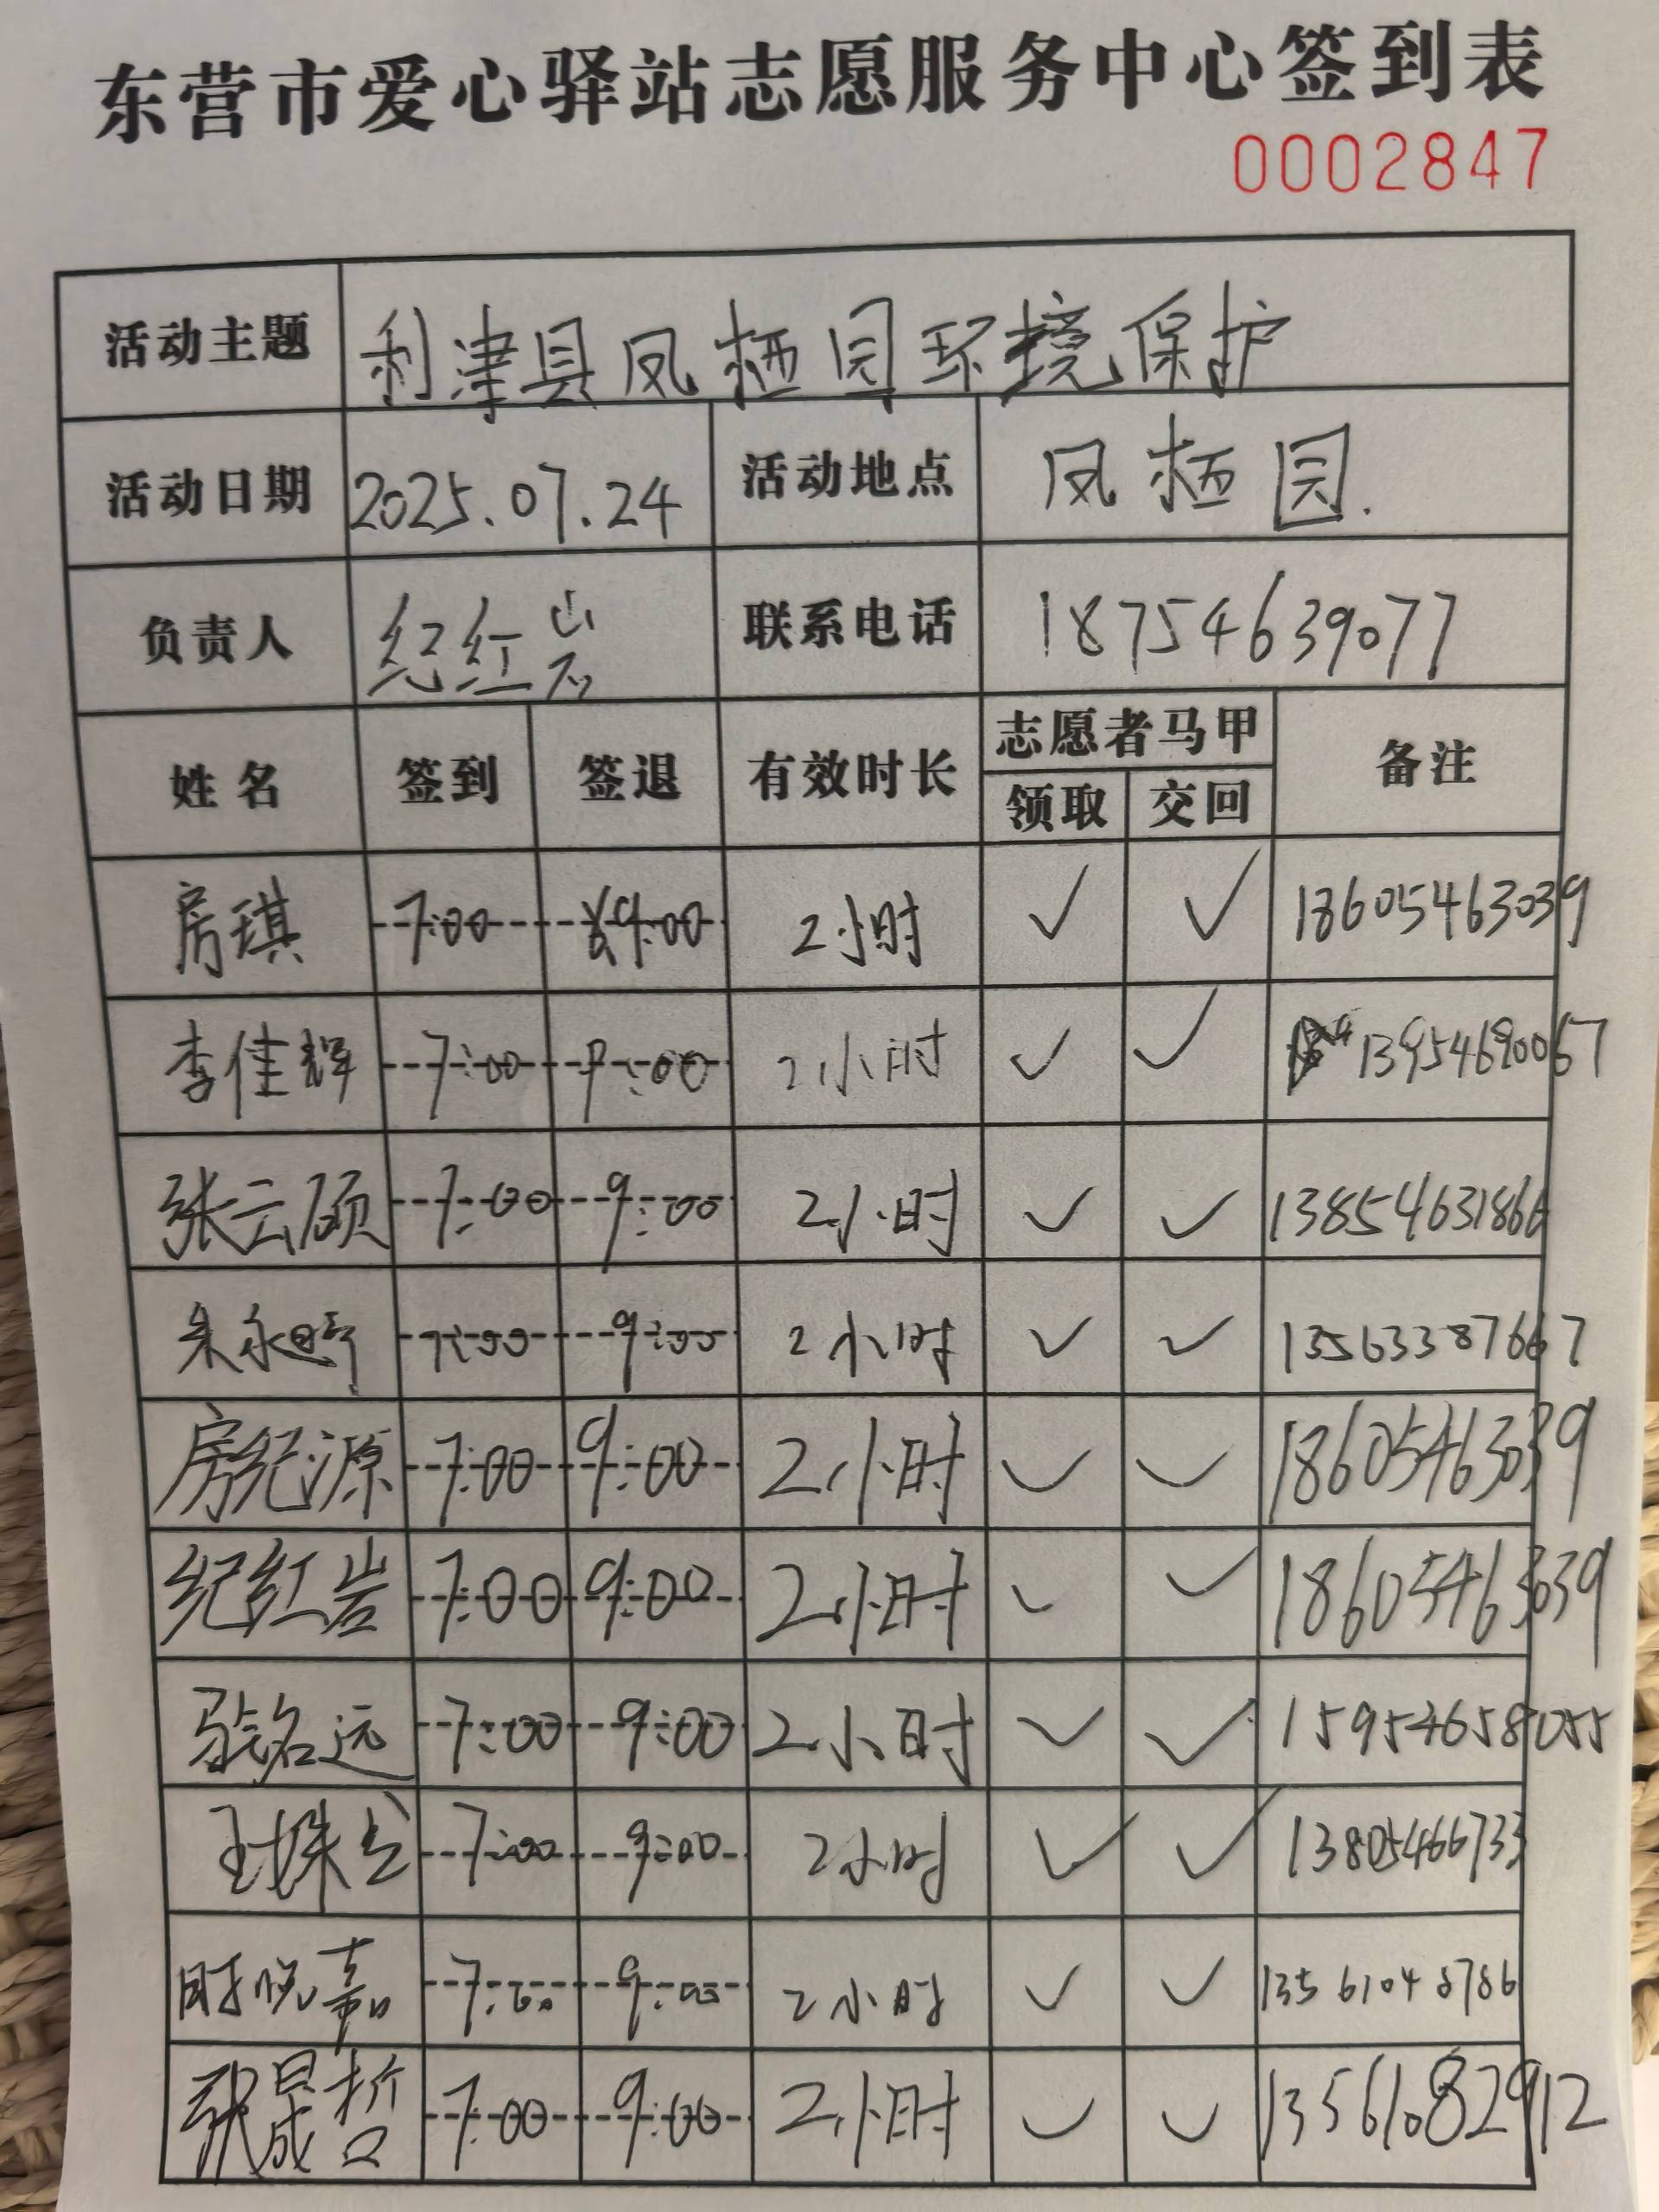 东营市爱心驿站志愿服务中心签到表
0002847
活动主题 利津县凤栖园环境保护
活动日期 2025.07.24 活动地点 凤栖园.
负责人 纪红岩 联系电话 18754639077
姓名 签到 签退 有效时长 志愿者马甲 领取 交回 备注
房琪 7:00 9:00 2小时 ✓ ✓ 18605463039
李佳辉 7:00 9:00 2小时 ✓ ✓ 13954690067
张云硕 7:00 9:00 2小时 ✓ ✓ 13854631866
朱永 7:00 9:00 2小时 ✓ ✓ 13563387667
房纪源 7:00 9:00 2小时 ✓ ✓ 18605463039
纪红岩 7:00 9:00 2小时 ✓ ✓ 18605463039
名远 7:00 9:00 2小时 ✓ ✓ 15954658055
7:00 9:00 2小时 ✓ ✓ 13805466733
时悦嘉 7:00 9:00 2小时 ✓ ✓ 13561048786
张晟哲 7:00 9:00 2小时 ✓ ✓ 13561082912